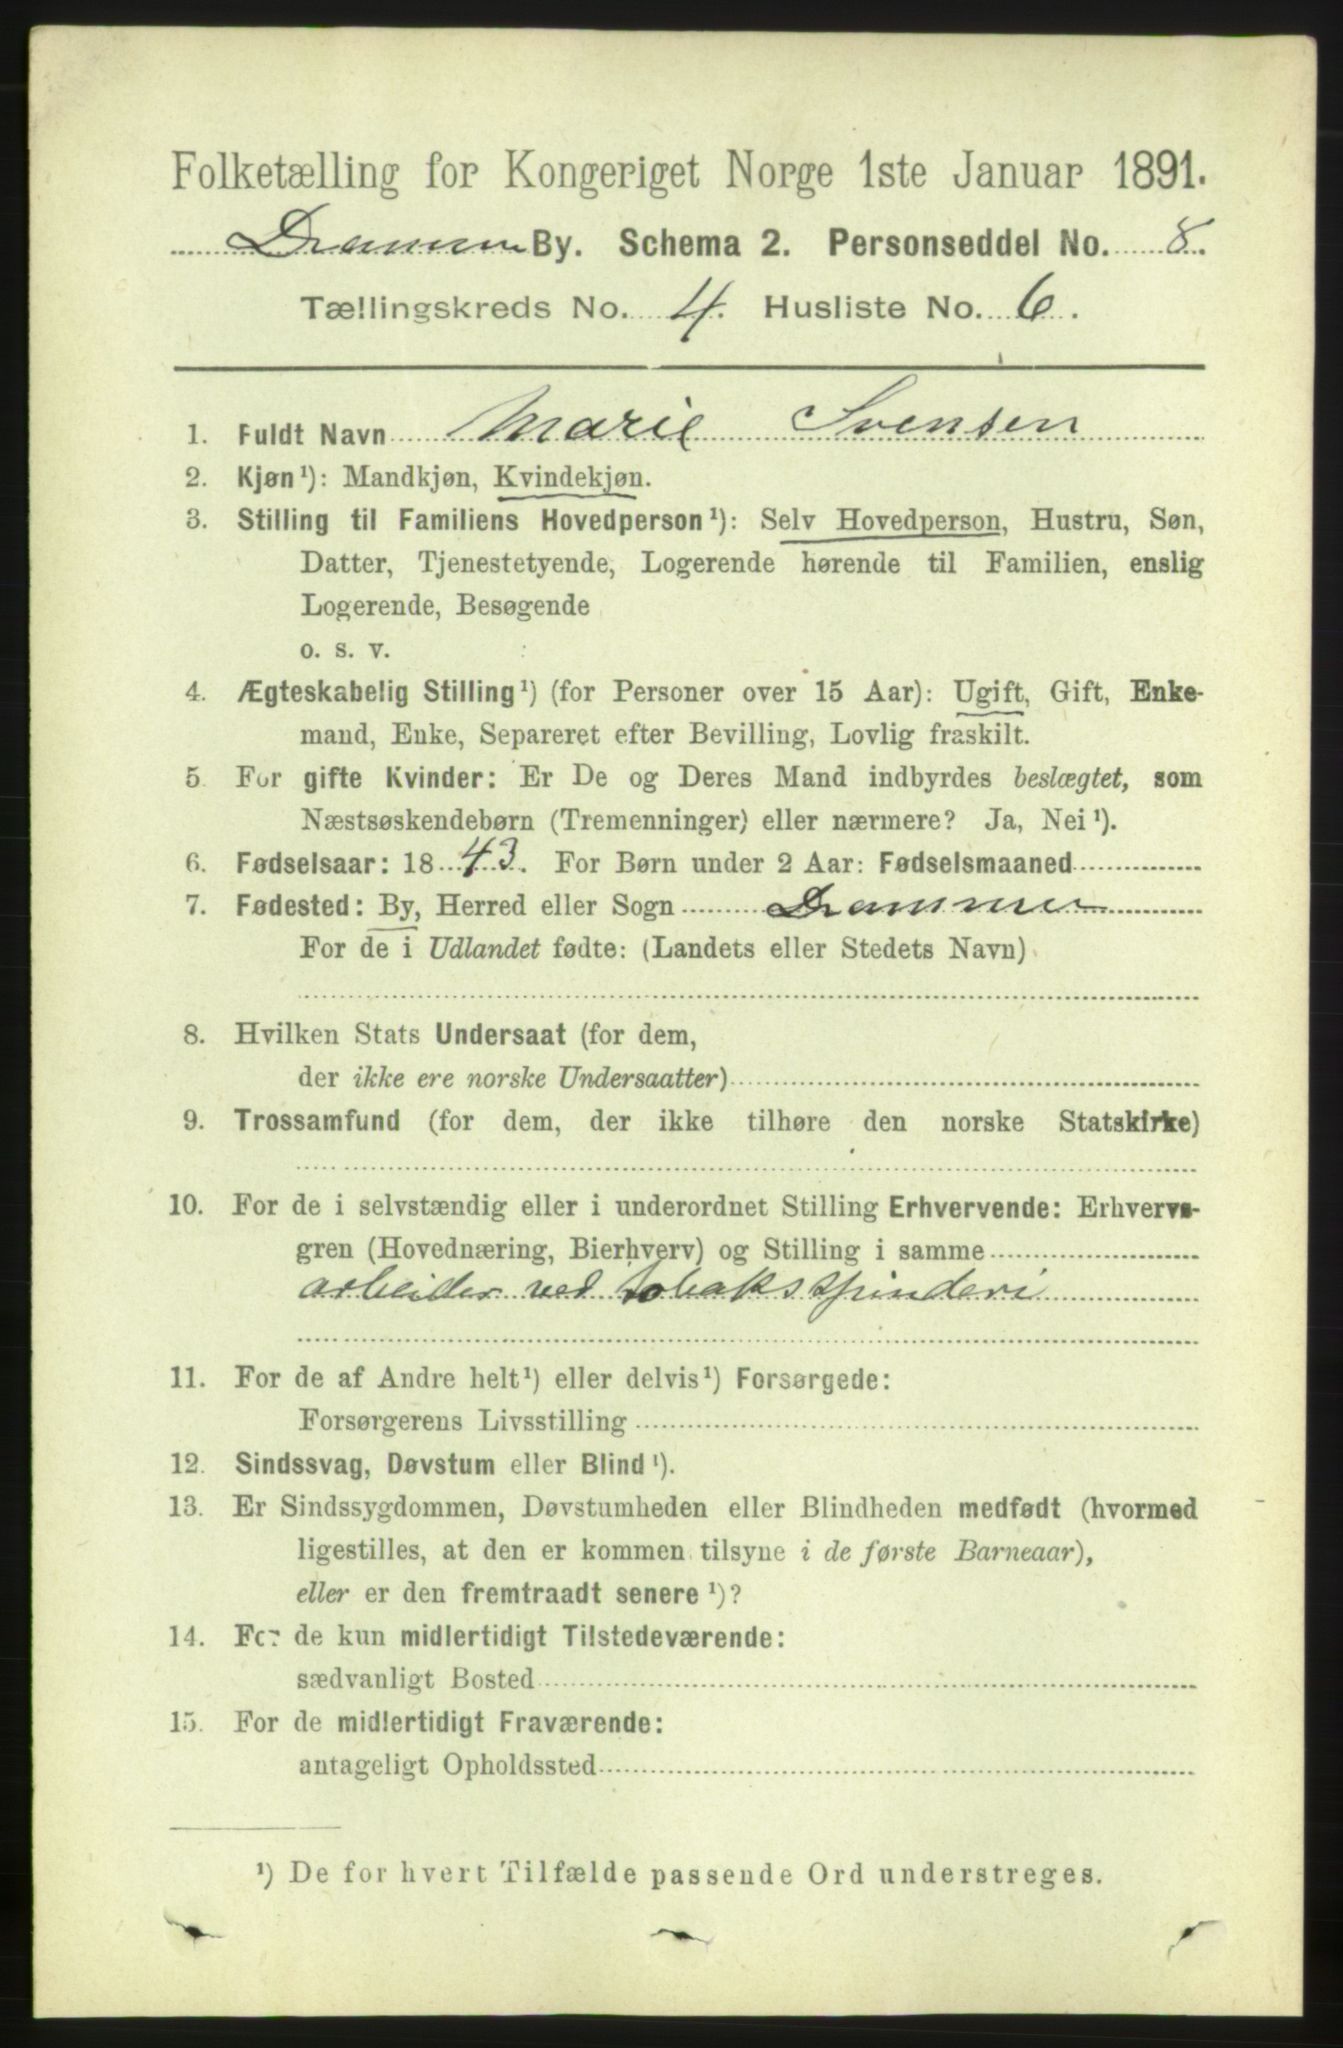 Folketælling for Kongeriget Norge 1ste Januar 1891.
Drammen By. Schema 2. Personseddel No. 8.
Tællingskreds No. 4. Husliste No. 6.
1. Fuldt Navn Marie Svensen
2. Kjøn¹): Mandkjøn, Kvindekjøn.
3. Stilling til Familiens Hovedperson¹): Selv Hovedperson, Hustru, Søn,
Datter, Tjenestetyende, Logerende hørende til Familien, enslig
Logerende, Besøgende
o. s. v.
4. Ægteskabelig Stilling¹) (for Personer over 15 Aar): Ugift, Gift, Enke-
mand, Enke, Separeret efter Bevilling, Lovlig fraskilt.
5. For gifte Kvinder: Er De og Deres Mand indbyrdes beslægtet, som
Næstsøskendebørn (Tremenninger) eller nærmere? Ja, Nei¹).
6. Fødselsaar: 1843. For Børn under 2 Aar: Fødselsmaaned
7. Fødested: By, Herred eller Sogn Drammen
For de i Udlandet fødte: (Landets eller Stedets Navn)
8. Hvilken Stats Undersaat (for dem,
der ikke ere norske Undersaatter)
9. Trossamfund (for dem, der ikke tilhøre den norske Statskirke)
10. For de i selvstændig eller i underordnet Stilling Erhvervende: Erhvervs-
gren (Hovednæring, Bierhverv) og Stilling i samme
arbeider ved tobaksspinderi
11. For de af Andre helt¹) eller delvis¹) Forsørgede:
Forsørgerens Livsstilling
12. Sindssvag, Døvstum eller Blind¹).
13. Er Sindssygdommen, Døvstumheden eller Blindheden medfødt (hvormed
ligestilles, at den er kommen tilsyne i de første Barneaar),
eller er den fremtraadt senere¹)?
14. For de kun midlertidigt Tilstedeværende:
sædvanligt Bosted
15. For de midlertidigt Fraværende:
antageligt Opholdssted
¹) De for hvert Tilfælde passende Ord understreges.